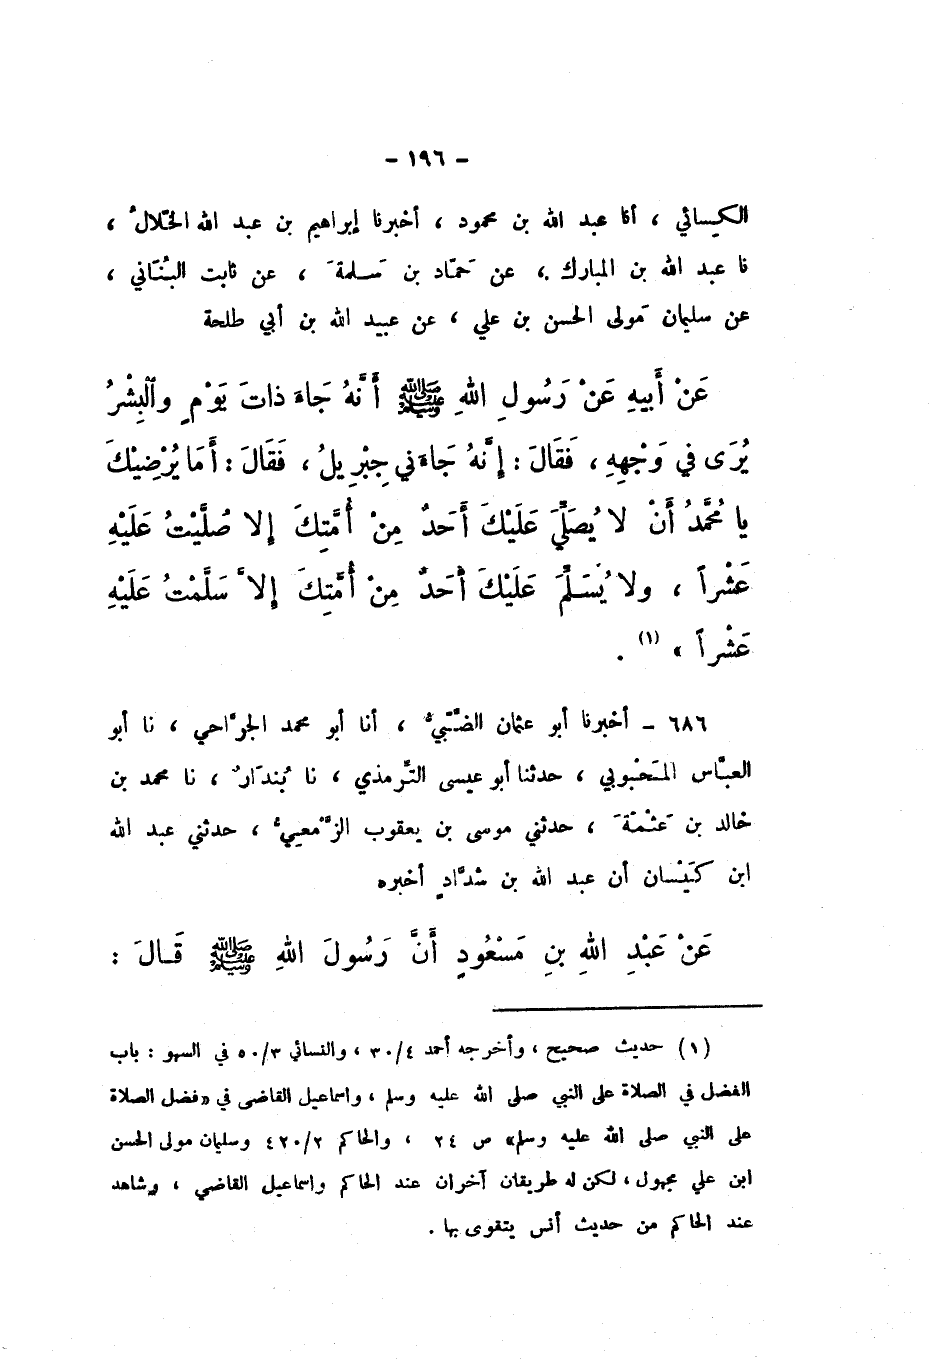 - ١٩٦ -
الكيسائي ، أنا عبد الله بن محمود ، أخبرنا إبراهيم بن عبد الله الخلَّالُ ،
نا عبد الله بن المبارك ، عن حَمَّاد بن سَلمةَ ، عن ثابت البُنَاني ،
عن سليمان مَولى الحسن بن علي ، عن عبيد الله بن أبي طلحة
عَنْ أَبِيهِ عَنْ رَسُولِ اللهِ ﷺ أَنَّهُ جَاءَ ذاتَ يَوْمٍ والْبِشْرُ
يُرَى في وَجْهِهِ ، فَقَالَ : إِنَّهُ جَاءَني جِبْرِيلُ ، فَقَالَ : أَمَا يُرْضِيْكَ
يا مُحَمَّدُ أَنْ لا يُصَلِّيَ عَلَيْكَ أَحَدٌ مِنْ أُمَّتِكَ إلا صُلَّيْتُ عَلَيْهِ
عَشْراً ، ولا يُسَلِّمَ عَلَيْكَ أَحَدٌ مِنْ أُمَّتِكَ إلاَّ سَلَّمْتُ عَلَيْهِ
عَشْراً » (١) .
٦٨٦ – أخبرنا أبو عثمان الضَّبِّيُّ ، أنا أبو محمد الجرَّاحي ، نا أبو
العبَّاس المَحْبُوبي ، حدثنا أبو عيسى التِّرمذي ، نا بُندَارٌ ، نا محمد بن
خالد بن عَثْمَةَ ، حدثني موسى بن يعقوب الزَّمْعِيُّ ، حدثني عبد الله
ابن كَيْسان أن عبد الله بن شدَّادٍ أخبره
عَنْ عَبْدِ اللهِ بنِ مَسْعُودٍ أَنَّ رَسُولَ اللهِ ﷺ قَالَ :
(١) حديث صحيح ، وأخرجه أحمد ٣٠/٤ ، والنسائي ٥٠/٣ في السهو : باب
الفضل في الصلاة على النبي صلى الله عليه وسلم ، واسماعيل القاضى في «فضل الصلاة
على النبي صلى الله عليه وسلم» ص ٢٤ ، والحاكم ٤٢٠/٢ وسليمان مولى الحسن
ابن علي مجهول ، لكن له طريقان آخران عند الحاكم واسماعيل القاضي ، وشاهد
عند الحاكم من حديث أنس يتقوى بها .